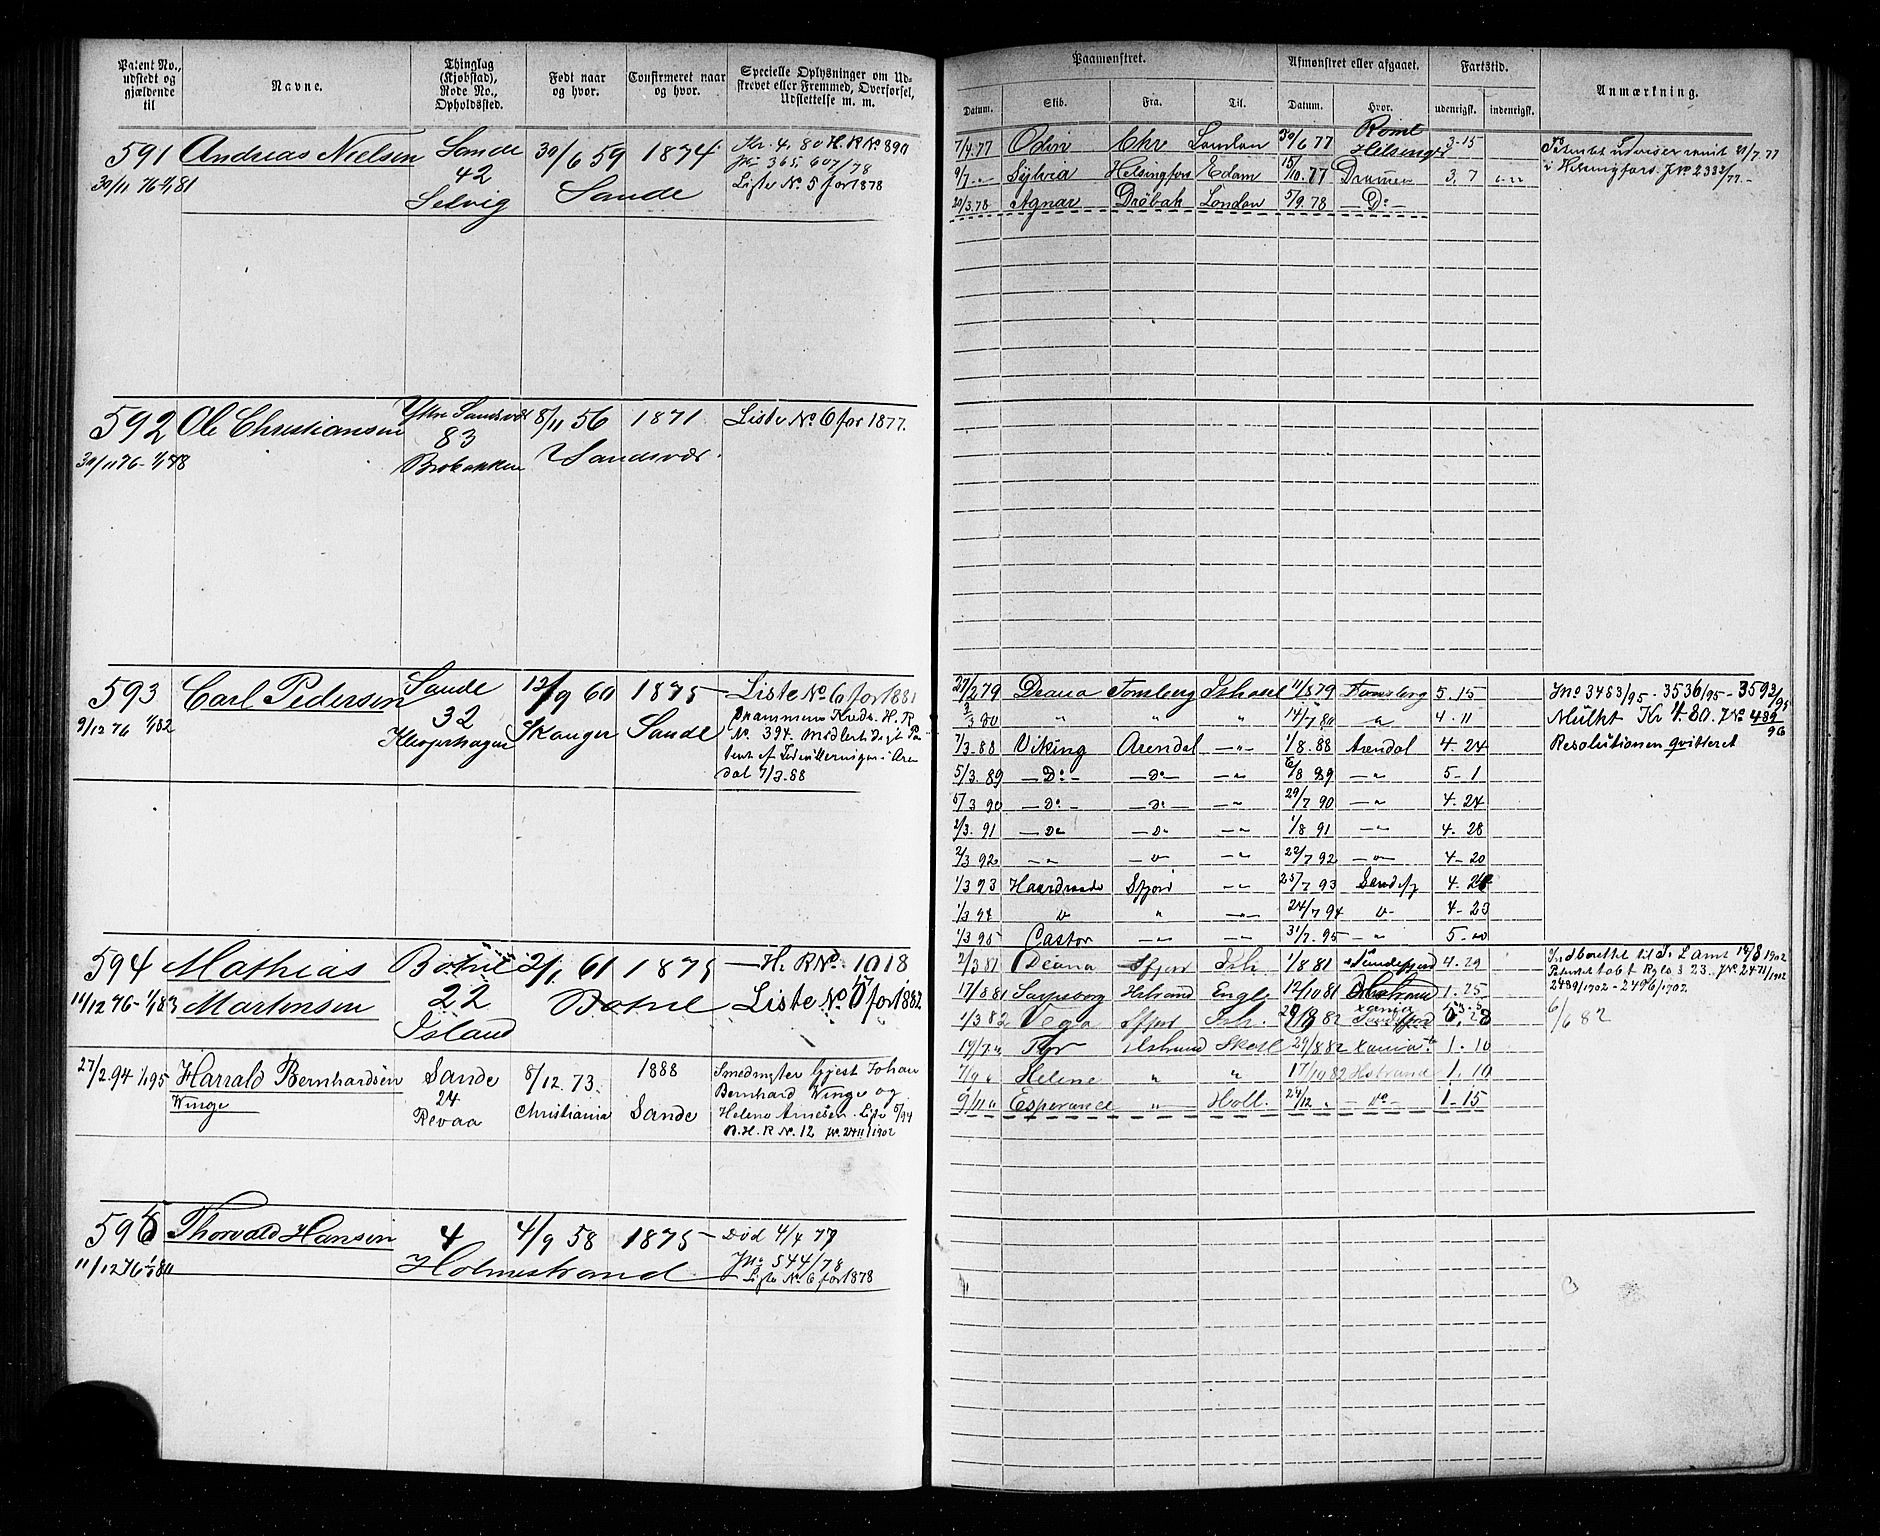 Patent No., udstedt og gjældende til
Navne.
Thinglag (Kjøbstad), Rode No., Opholdssted.
Født naar og hvor.
Confirmeret naar og hvor.
Specielle Oplysninger om Udskrevet eller Fremmed, Overførsel, Udslettelse m. m.
Paamønstret.
Afmønstret eller afgaaet.
Fartstid.
Anmærkning.
Datum. Skib. Fra. Til. Datum. Hvor. udenrigsk. indenrigsk.
591 Andreas Nielsen Sande 30/6 59 1874 Kr. 4,80 H. R No 890
30/11 76 1/1 81 42 Sande JNo 365, 607/78
Selvig Liste No 5 for 1878
7/4 77 Odin Chr London 30/6 77 Helsingør 3-15
9/7 Sylvia Helsingfors Edam 15/10 77 Dramen 3. 7
20/3 78 Agnar Drøbak London 5/9 78 — Do —
i Helsingfors. JNo 2382/77
592 Ole Christiansen Ytre Sandsvær 8/11 56 1871 Liste No 6 for 1877.
30/11 76 83 Y Sandsvær.
593 Carl Pedersen Sande 12/9 60 1875 Liste No 6 for 1881
9/12 76 1/1 82 32 Skouger Sande
No. 394.
dal 7/3 88
27/2 79 Diana Tonsberg Ishavet 11/8 79 Tonsberg 5. 15
2/3 80 " " " 14/7 80 " 4. 11
7/3 88 Viking Arendal — " 1/8 88 Arendal 4- 24
5/3. 89 — Do — — do — — " 6/8 89 — " 5- 1
5/3 90 — do — — do — — " 29/7 90 — " 4- 24
2/3. 91 — do — do — " 1/8 91 — " 4- 28
2/3 92 — " — " — " 22/7 92 — " 4- 20
1/3 93 Haardraade Sfjord — " 25/7 93 Sandefj 4-
1/3 94 " " — " 24/7 94 " 4- 23
1/3 95 Castor — " — " 31/7. 95 — "
JNo 3483/95 - 3536/95 - 3593/95
Mulkt Kr 4.80. JNo 489/96
Resolutionen qvitteret
594 Mathias Martensen Botne 2/1 61 1875 H. R No. 1018
11/12 76 - 1/1 83 22 Botne Liste No 5 for 1882
Island
2/3 81 Diana Sfjord Ish. 1/8 81 Sandefjord 4. 29
17/8 81 Sarpsborg Hstrand Engl. 12/10 81 Hstrand 1. 25
1/3 82 Vega Sfjord Ish.
19/7 " Tyr Hstrand Skotl 29/8 82 Xania 1. 10
7/9 " Helene " " 17/10 82 Hstrand 1. 10
9/11 " Esperance " Holl. 24/12 " — do — 1- 15
2489/1902 - 2496/1902.
6/6 82
27/2. 94 1/1 95 Harrald Bernhardsen Winge Sande 8/12. 73. 1888 Smedmester Gjest Johan
24 Christiania Sande Bernhard Winge og
Revaa Helene Arnesen. Liste 5/94
B. H. R No. 12 JNo. 2411/1902
596 Thorvald Hansen 4 4/9 58 1875 Død 4/4 77
11/12 76 Holmestrand JNo 544/78
Liste No 6 for 1878